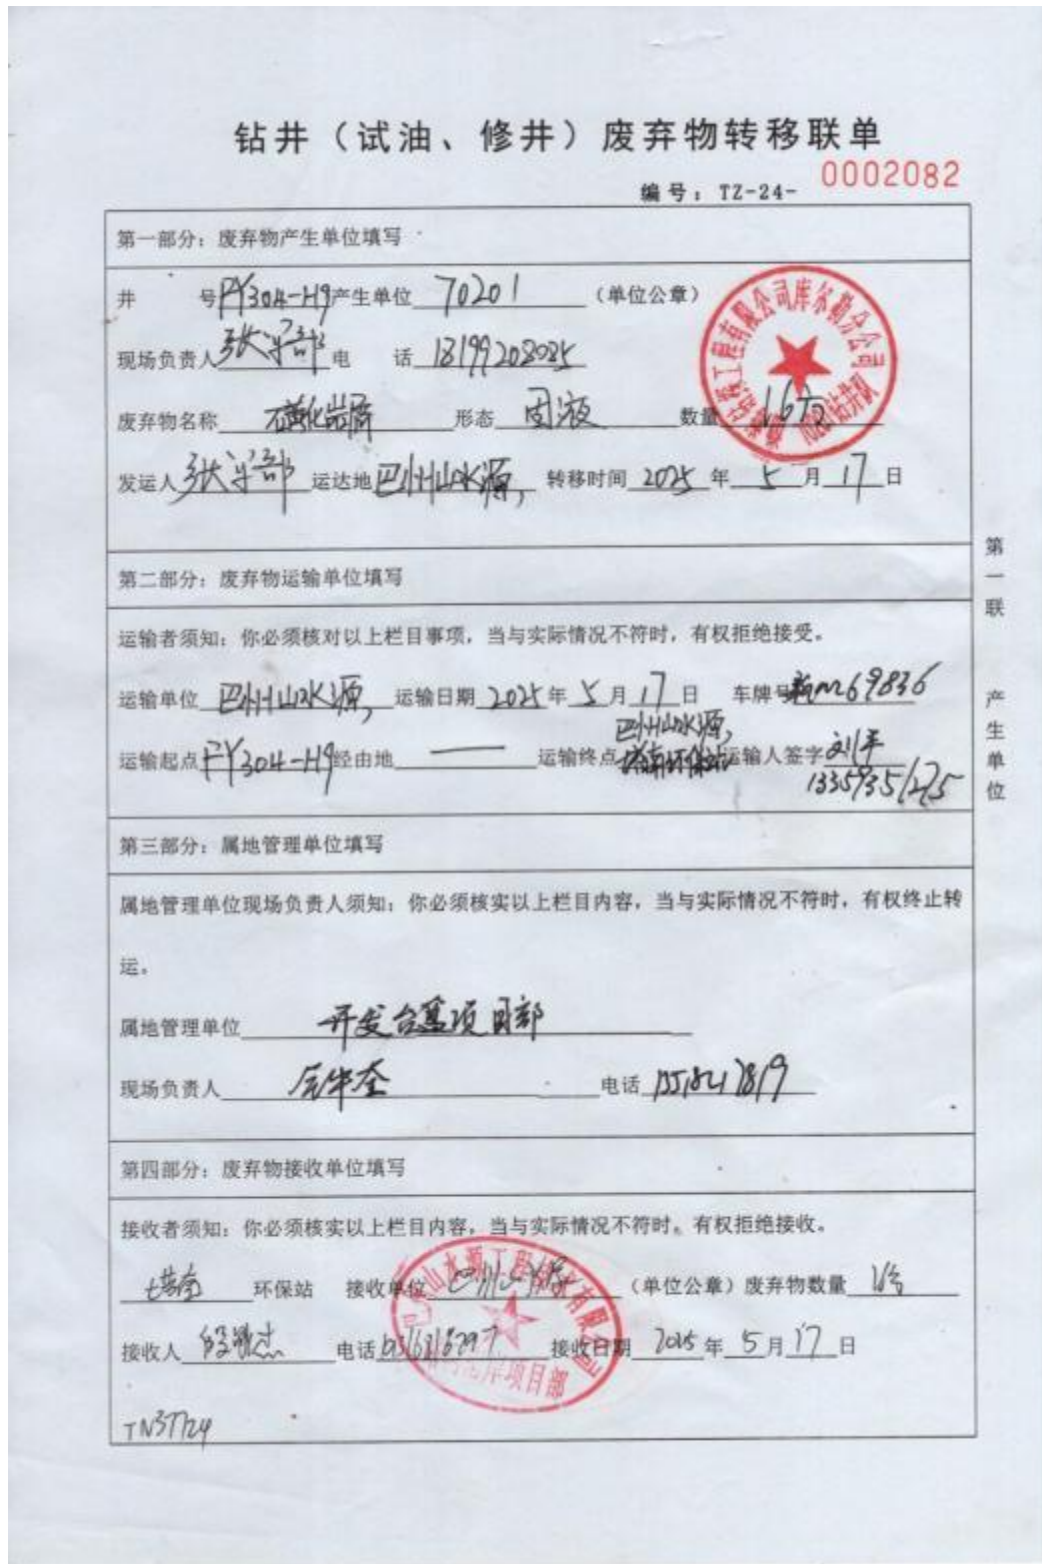 钻井（试油、修井）废弃物转移联单
编号：TZ-24- 0002082
第一部分：废弃物产生单位填写
井 号 FY304-H9 产生单位 70201 （单位公章）
现场负责人 张学部 电 话 18199208085
废弃物名称 磺化岩屑 形态 固液 数量 16方
发运人 张学部 运达地 巴州山水源 转移时间 2025 年 5 月 17 日
第二部分：废弃物运输单位填写
运输者须知：你必须核对以上栏目事项，当与实际情况不符时，有权拒绝接受。
运输单位 巴州山水源 运输日期 2025 年 5 月 17 日 车牌号 新M69836
运输起点 FY304-H9 经由地 —— 运输终点 巴州山水源，塔南环保站 运输人签字 刘平
13359351275
第三部分：属地管理单位填写
属地管理单位现场负责人须知：你必须核实以上栏目内容，当与实际情况不符时，有权终止转
运。
属地管理单位 开发 项目部
现场负责人 电话
第四部分：废弃物接收单位填写
接收者须知：你必须核实以上栏目内容，当与实际情况不符时。有权拒绝接收。
塔南 环保站 接收单位 巴州山水源 （单位公章）废弃物数量
接收人 电话 接收日期 2025 年 5 月 17 日
第一联 产生单位